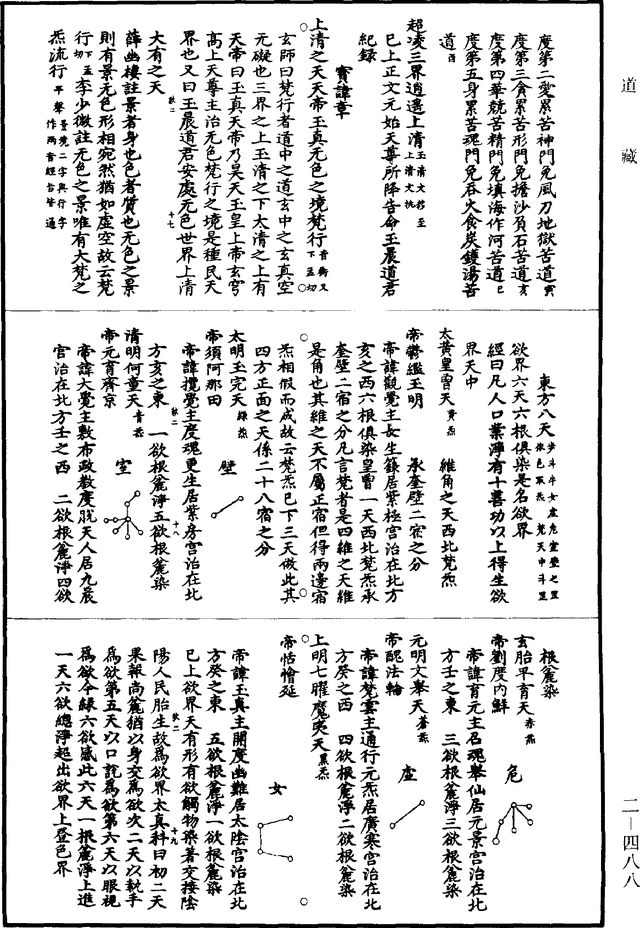 道藏
度第二愛累苦神門免風刀地獄苦道寅
度第三貪累苦形門免擔沙負石苦道亥
度第四華競苦精門免填海作河苦道巳
度第五身累苦魂門免吞火食炭鑊湯苦
道酉
超凌三界逍遥上清玉清文移至上清文抗
巳上正文元始天尊所降告命玉晨道君
紀録
寳諱章
上清之天天帝玉真无色之境梵行音衡又下孟切
玄師曰梵行者道中之道玄中之玄真空
无礙也三界之上玉清之下太清之上有
天帝曰玉真天帝乃昊天玉皇上帝玄穹
高上天尊主治无色梵行之境是種民天
界也又曰玉晨道君安處无色世界上清
大有之天
薛幽棲註景者身也色者質也无色之景
則有景无色形相宛然猶如虚空故云梵
行下孟切李少微註无色之景唯有大梵之
炁流行平聲梵二字與行字作兩音經皆通
東方八天步斗牛女虚危室壁之罡依色取炁梵天中斗罡
欲界六天六根俱染是名欲界
經曰凡人口業淨有十善功以上得生欲
界天中
太黄皇曾天黄炁 維角之天西北梵炁
帝欎繿玉明 承奎壁二宿之分
帝諱觀覺主長生籙居紫極宫治在北方
亥之西六根俱染皇曾一天西北梵炁承
奎壁二宿之分凡言梵者是四維之天維
是角也其維之天不屬正宿但得兩邊宿
炁相假而成故云梵炁已下三天倣此其
四方正面之天係二十八宿之分
太明玉完天緑炁 壁
帝須阿那田
帝諱攬覺主度魂更生居紫房宫治在北
方亥之東 一欲根麄淨五欲根麄染
清明何童天青炁 室
帝元育齊京
帝諱大覺主敷布政教度脱天人居九晨
宫治在北方壬之西 二欲根麄淨四欲
根麄染
玄胎平育天赤炁 危
帝劉度内鮮
帝諱育元主召魂舉仙居元景宫治在北
方壬之東 三欲根麄淨三欲根麄染
元明文舉天蒼炁 虚
帝醜法輪
帝諱梵雲主通行元炁居廣寒宫治在北
方癸之西 四欲根麄淨二欲根麄染
上明七曜摩夷天黑炁
帝恬懀延 女
帝諱玉真主開度幽難居太陰宫治在北
方癸之東 五欲根麄淨一欲根麄染
巳上欲界天有形有欲觸物染著交接陰
陽人民胎生故為欲界太真科曰初二天
果報尚麄猶以身交為欲次二天以執手
為欲第五天以口説為欲第六天以眼視
為欲今緑六欲感此六天一根麄淨上進
一天六欲總淨超出欲界上登色界
二—四八八